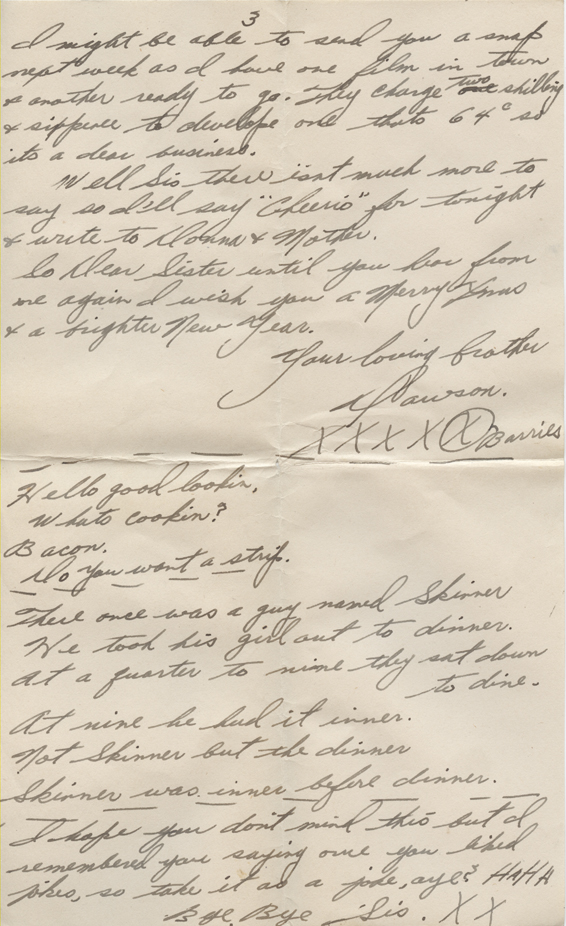 3
I might be able to send you a snap
next week as I have one film in town
& another ready to go. They charge two shilling
& sixpence to develope one thats 64¢ so
its a dear business.
Well Sis there isnt much more to
say so I'll say "Cheerio" for tonight
& write to Donna & Mother.
So Dear Sister until you hear from
me again I wish you a Merry Xmas
& a brighter New Year.
Your loving brother
Dawson.
X X X X X Barries
Hello good lookin,
Whats cookin?
Bacon.
Do you want a strip.
There once was a guy named Skinner
He took his girl out to dinner.
At a quarter to nine they sat down
to dine.
At nine he had it inner.
Not Skinner but the dinner
Skinner was inner before dinner.
I hope you don't mind this but I
remembered you saying once you liked
jokes, so take it as a joke, aye? HAHA
Bye Bye Sis. X X